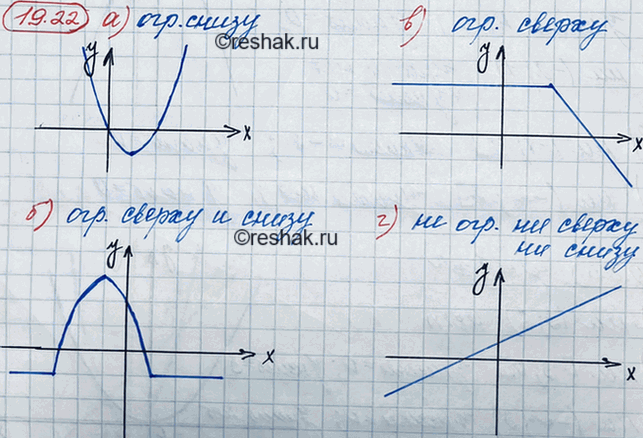 19.22 а) огр. снизу
©reshak.ru
y
x
в) огр. сверху
y
x
б) огр. сверху и снизу
©reshak.ru
y
x
г) не огр. ни сверху
ни снизу
y
x